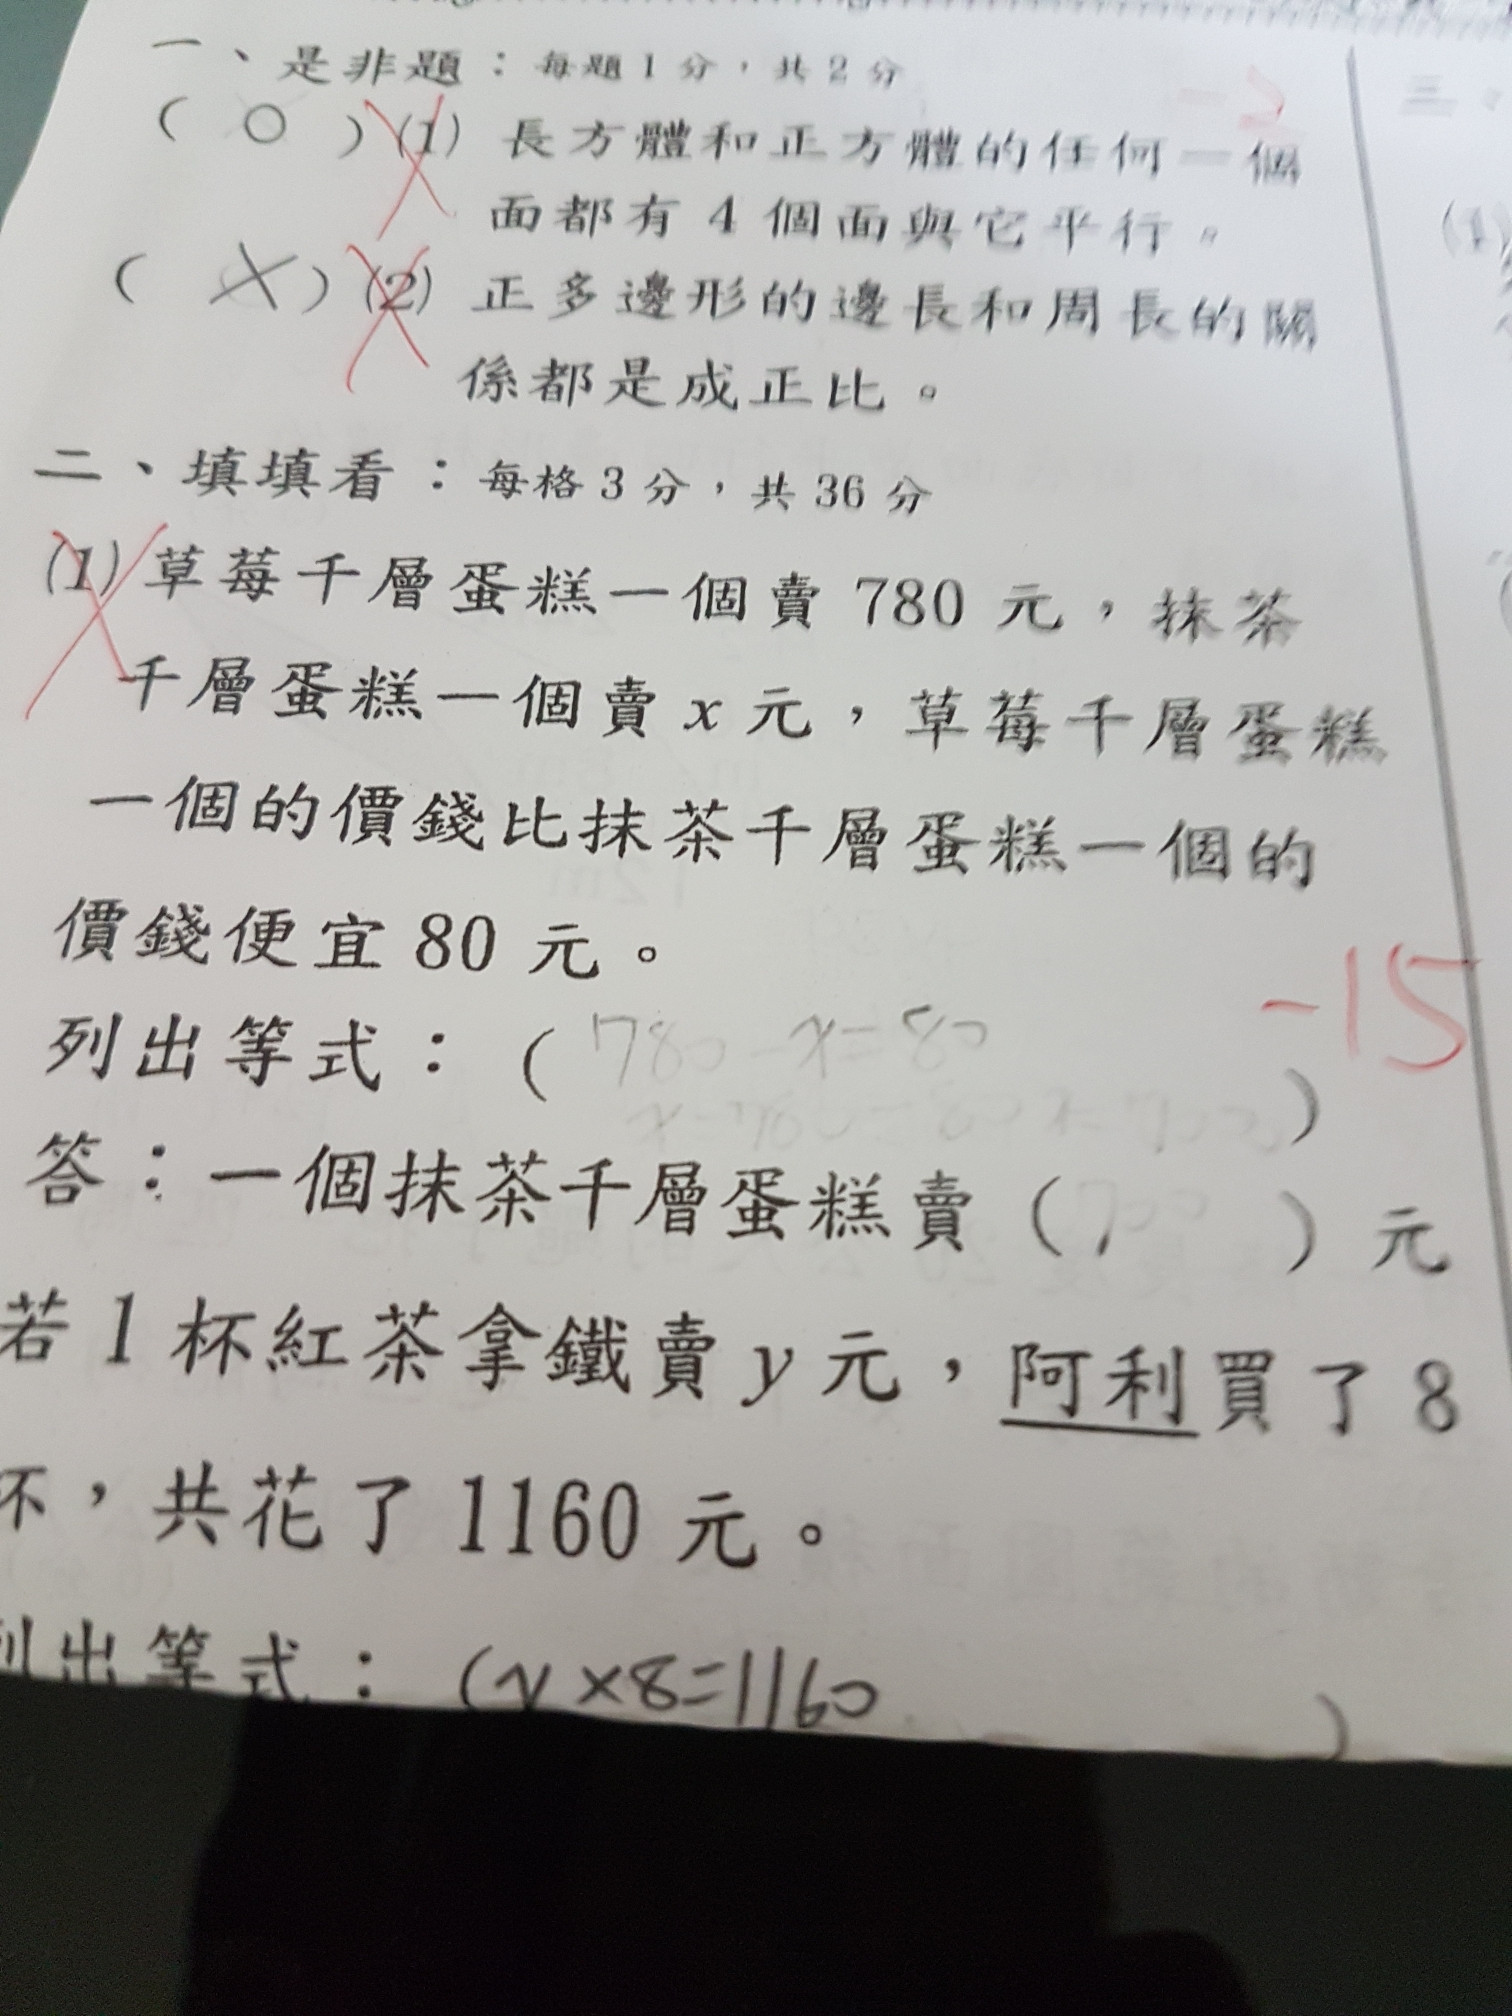 一、是非題：每題1分，共2分
-2
( ○ ) (1) 長方體和正方體的任何一個
面都有4個面與它平行。
( X ) (2) 正多邊形的邊長和周長的關
係都是成正比。
二、填填看：每格3分，共36分
(1) 草莓千層蛋糕一個賣780元，抹茶
千層蛋糕一個賣x元，草莓千層蛋糕
一個的價錢比抹茶千層蛋糕一個的
價錢便宜80元。
-15
列出等式：( 780-x=80 )
答：一個抹茶千層蛋糕賣(700)元
若1杯紅茶拿鐵賣y元，阿利買了8
杯，共花了1160元。
列出等式：(y×8=1160 )
三、